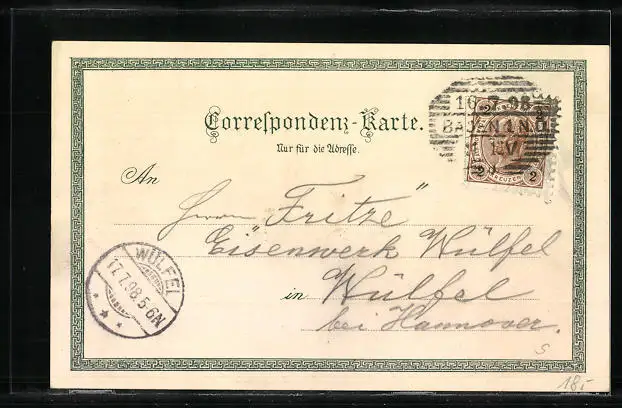 Correspondenz-Karte.
Nur für die Adresse.
16.7.98
BADEN I. N.Ö.
2 KREUZER 2
An
Herrn "Fritze"
Eisenwerk Wülfel
in Wülfel
bei Hannover.
WÜLFEL
17.7.98.5-6N
S
18.-